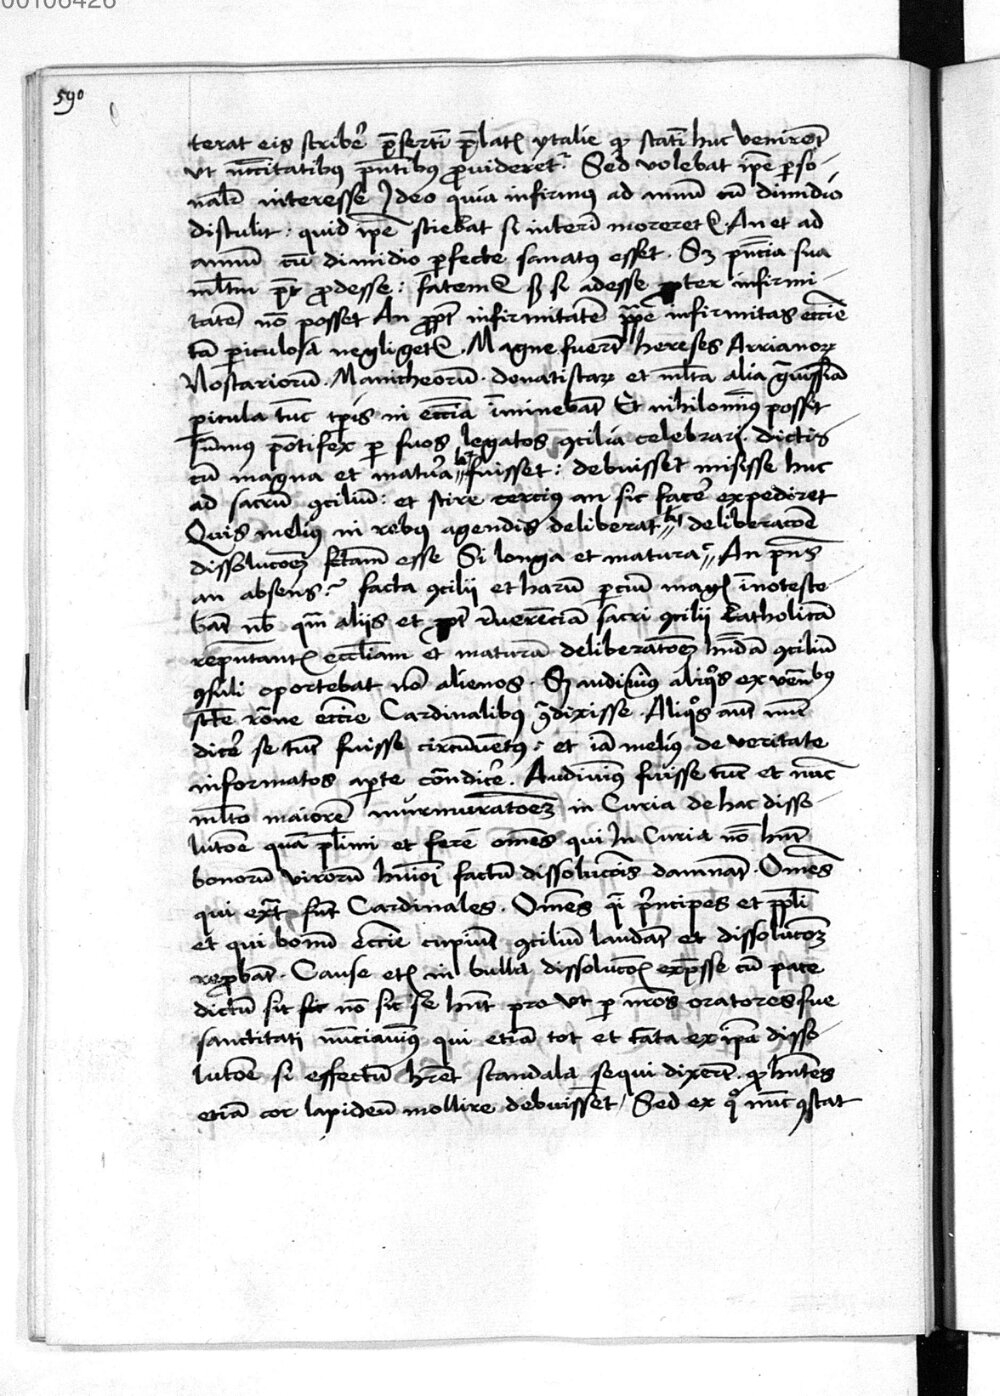 00106426
590
terat eis scribe᷑ p̄serti͂ p̄lat? ytalie ꝙ stati͂ huc veniren͂t
ut nccitatibus pn̄tibus ꝓuideret᷑ Sed volebat ip̄e ꝑso-
nalr̄ interesse Ideo quia infirmus ad annū cū dimidio
distulit: quid ip̄e sciebat si interī moreret᷑. An et ad
annū cū dimidio ꝑfecte sanatus esset. Sꝫ pn̄cia sua
ml̄tm pt̄ ꝓdesse: fatem᷑ sꝫ si adesse ꝓpter infirmi-
tatē nō posset An ꝓpt̄ infirmitatē ip̄ie infirmitas eccīe
tā ꝑiculosa negliget᷑. Magne fuerūt hereses Arrianoꝝ
Nostariorū. Manicheorū. donatistaꝝ et ml̄ta alia g̃uissīa
ꝑicula tūc tꝑis in ecc̄ia īminebāt Et nihilominus posset
sūmus pōtifex ꝑ suos legatos ꝯcilia celebrari. dictis
cū magna et matura fuisset: debuisset misisse huc
ad sacrū ꝯciliū: et scire cercius an sic face᷑ expediret
Quis melius in rebus agendis deliberat deliberacōe
dissolucōeꝫ fc̄am esse Si longa et matura An pn̄s
an absens? facta ꝯcilii et harū ꝑciū mag? īnotesce-
bāt nob̄ qm̄ aliis et ꝓpt̄ r̄uerēciā sacri ꝯcilii Catholicā
rep̄ntant? ecc̄liam et maturā deliberatōeꝫ hn̄dā ꝯciliū
ꝯsuli oportebat nō alienos. Sꝫ audiuimus aliqͦs ex ven̄bus
sc̄te rōne eccīe Cardinalibus ꝯ̄dixisse. Aliqͦs aūt nūc
dice᷑ se tūc fuisse circūuentus: et iā melius de veritate
informatos aꝑte con̄dice᷑. Audiuimus fuisse tūc et nūc
ml̄to maiorē murmuratōeꝫ in Curia de hac disso-
lutōe quā pl̄imi et ferē om̄es qui In Curia nō hn̄t
bonorū virorū hui͂oi factū dissolucōis damnāt. Om̄es
qui ext̄ sūt Cardinales. Om̄es qͣi pͥncipes et ppl̄i
et qui bonū eccīe cupiūt ꝯciliū laudāt et dissolucōeꝫ
reꝓbāt. Cause et? in bulla dissolucō? exp̄sse cū pace
dictū sit sic nō sic se hn̄t pro ut ꝑ nr̄os oratores sue
sanctitati nūciauimus qui etiā tot et tāta ex ip̄a disso-
lutōe si effectū hr̄et scandala sequi dixerūt ꝙ hōines
etiā cor lapideū mollire debuissēt / Sed ex qͦ nūc ꝯstat